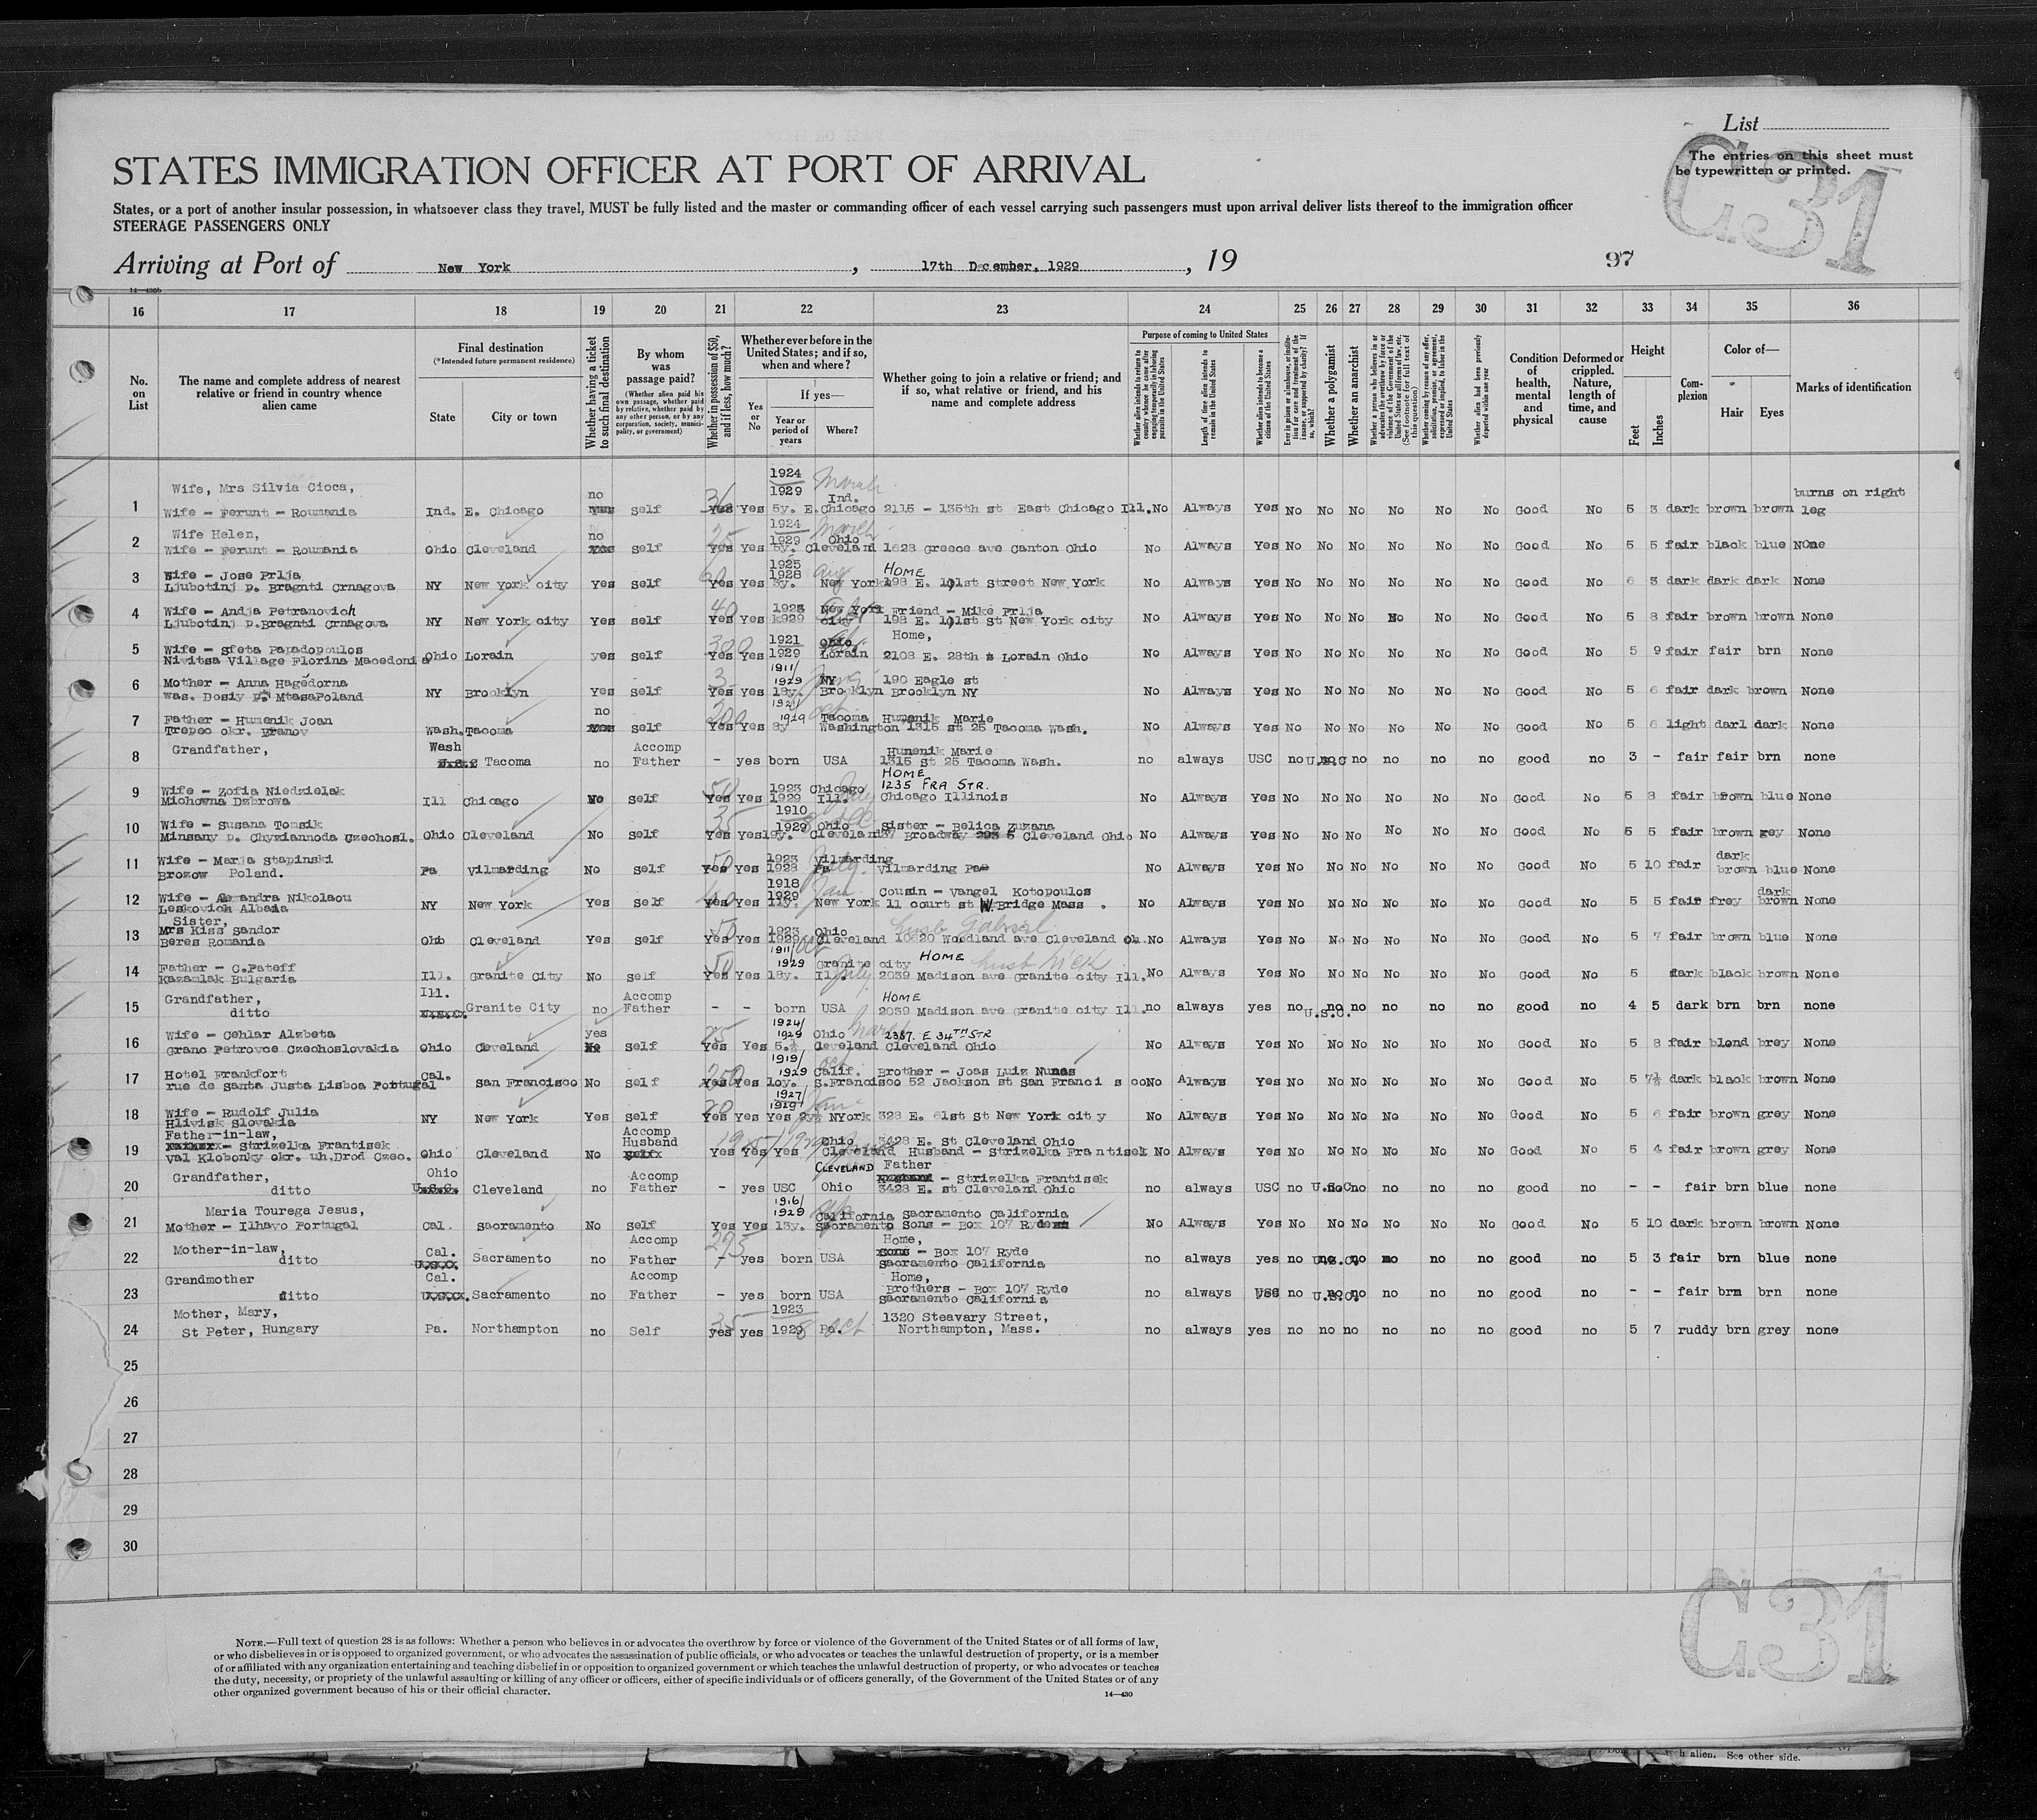 List
The entries on this sheet must
be typewritten or printed.
C31
STATES IMMIGRATION OFFICER AT PORT OF ARRIVAL
States, or a port of another insular possession, in whatsoever class they travel, MUST be fully listed and the master or commanding officer of each vessel carrying such passengers must upon arrival deliver lists thereof to the immigration officer
STEERAGE PASSENGERS ONLY
Arriving at Port of New York, 17th December, 1929, 19
97
16 17 18 19 20 21 22 23 24 25 26 27 28 29 30 31 32 33 34 35 36
No. on List
The name and complete address of nearest relative or friend in country whence alien came
Final destination
(*Intended future permanent residence)
State
City or town
Whether having a ticket to such final destination
By whom was passage paid?
(Whether alien paid his own passage, whether paid by relative, whether paid by any other person, or by any corporation, society, municipality, or government)
Whether in possession of $50, and if less, how much?
Whether ever before in the United States; and if so, when and where?
Yes or No
If yes—
Year or period of years
Where?
Whether going to join a relative or friend; and if so, what relative or friend, and his name and complete address
Purpose of coming to United States
Length of time alien intends to remain in the United States
Whether alien intends to become a citizen of the United States
Whether a polygamist
Whether an anarchist
Condition of health, mental and physical
Deformed or crippled. Nature, length of time, and cause
Height
Feet
Inches
Complexion
Color of—
Hair
Eyes
Marks of identification
Wife, Mrs Silvia Cioca, no 1924 1929 Ind. burns on right
1 Wife - Ferunt - Roumania Ind. E. Chicago self Yes Yes 5y. E.Chicago 2115 - 135th st East Chicago Ill. No Always Yes No No No No No No Good No 5 3 dark brown brown leg
Wife Helen, no 1924 1929 March Ohio
2 Wife - Ferunt - Roumania Ohio Cleveland self Yes Yes 5y. Cleveland 1628 greece ave Canton Ohio No Always Yes No No No No No No Good No 5 5 fair black blue None
Wife - Jose Prlja 1925 1928 Aug HOME
3 Ljubotinj p. Bragnti Crnagova NY New York city Yes Self Yes Yes 3y. New York 198 E. 101st Street New York No Always Yes No No No No No No Good No 6 3 dark dark dark None
Wife - Andja Petranovich 40 1923 New York Friend - Mike Prlja
4 Ljubotinj p.Bragnti Crnagova NY New York city Yes self Yes Yes 1929 city 198 E. 101st St New York city No Always Yes No No No No No No Good No 5 8 fair brown brown None
Wife - Sfeta Papadopoulos 300 1921 Ohio Home,
5 Nivitsa Village Florina Macedonia Ohio Lorain yes self Yes Yes 1929 Lorain 2108 E. 28th s Lorain Ohio No Always Yes No No No No No No Good No 5 9 fair fair brn None
Mother - Anna Hagedorna 1911/ 1929 NY 190 Eagle st
6 was. Dosiy p. MtasaPoland NY Brooklyn Yes Self Yes Yes 18y. Brooklyn Brooklyn NY No Always Yes No No No No No No Good No 5 6 fair dark brown None
Father - Humenik Joan no 200 1921 1929 Oct Tacoma Humenik Marie
7 Trepec okr. Vranov Wash. Tacoma self Yes Yes 8y Washington 1315 st 25 Tacoma Wash. No Always Yes No No No No No No Good No 5 8 light darl dark None
Grandfather, Wash Accomp Humenik Marie
8 Tacoma no Father - yes born USA 1315 st 25 Tacoma Wash. no always USC no U.S.C no no no no no good no 3 - fair fair brn none
Wife - Zofia Niedzielak 50 1923 Chicago HOME 1235 FRA STR.
9 Michowna Dzbrowa Ill Chicago No Self Yes Yes 1929 Ill. Chicago Illinois No Always Yes No No No No No No Good No 5 8 fair brown blue None
Wife - Susana Tomsik 35 1910 1929 Ohio Sister - Belica Zuzana
10 Minsany p. Chyziannoda Czechosl. Ohio Cleveland No Self Yes Yes 19y. Cleveland Broadway Cleveland Ohio No Always Yes No No No No No No Good No 5 5 fair brown grey None
Wife - Marja Stapinski 50 1923 Vilmarding dark
11 Brozow Poland. Pa Vilmarding No Self Yes Yes 1928 Pa July. Vilmarding Pa No Always Yes No No No No No No Good No 5 10 fair brown blue None
Wife - Alexandra Nikolaou 1918 1929 Jan Cousin - Vangel Kotopoulos dark
12 Leskovich Albania NY New York Yes Self Yes Yes 11y. New York 11 court st W. Bridge Mass. No Always Yes No No No No No No Good No 5 5 fair frey brown None
Sister,
Mrs Kiss Sandor 50 1923 Ohio husb Gabriel
13 Beres Romania Ohio Cleveland Yes Self Yes Yes 1929 Cleveland 10820 Woodland ave Cleveland Oh. No Always Yes No No No No No No Good No 5 7 fair brown blue None
Father - C.Pateff 50 1911/ 1929 Granite city HOME husb Nick
14 Kazamlak Bulgaria Ill. Granite City No self Yes Yes 18y. Ill. July. 2039 Madison ave granite city Ill. No Always Yes No No No No No No Good No 5 dark black brown None
Grandfather, Ill. Accomp HOME
15 ditto Granite City no Father - - born USA 2039 Madison ave granite city Ill. no always yes no U.S.C. no no no no no good no 4 5 dark brn brn none
Wife - Cehlar Alzbeta yes 25 1924/ 1929 Ohio March 2387. E 34TH STR
16 Grano Petrovce Czechoslovakia Ohio Cleveland No Self Yes Yes 5.½ Cleveland Cleveland Ohio No Always Yes No No No No No No Good No 5 8 fair blond brey None
Hotel Frankfort Cal. 250 1919/ 1929 Oct Calif. Brother - Joas Luiz Nunas
17 rue de santa Justa Lisboa Portugal San Francisco No Self Yes Yes 10y. S.Francisco 52 Jackson st San Francisco No Always Yes No No No No No No Good No 5 7½ dark black brown None
Wife - Rudolf Julia 20 1927/ 1929 June
18 Hlivisk Slovakia NY New York Yes Self Yes Yes Yes 2y½ NYork 328 E. 61st St New York city No Always Yes No No No No No No Good No 5 6 fair brown grey None
Father-in-law, Accomp
- Strizelka Frantisek Husband Ohio 3428 E. St Cleveland Ohio
19 Val Klobonky okr. uh.Drod Czec. Ohio Cleveland No Yes Yes Yes Cleveland Husband - Strizelka Frantisek No Always Yes No No No No No No Good No 5 4 fair brown grey None
Grandfather, Ohio Accomp CLEVELAND Father - Strizelka Frantisek
20 ditto Cleveland no Father - yes USC Ohio 3428 E. st Cleveland Ohio no always USC no U.S.C. no no no no good no - - fair brn blue none
Maria Tourega Jesus, 1916/ 1929 California Sacramento California
21 Mother - Ilhavo Portugal Cal. Sacramento No Self Yes Yes 13y. Sacramento Sons - Box 107 Ryde No Always Yes No No No No No No Good No 5 10 dark brown brown None
Mother-in-law, Cal. Accomp 295 Home,
22 ditto Sacramento no Father - yes born USA sons - Box 107 Ryde Sacramento California no always yes no U.S.C. no no no no good no 5 3 fair brn blue none
Grandmother Cal. Accomp Home,
23 ditto Sacramento no Father - yes born USA Brothers - Box 107 Ryde Sacramento California no always USC no U.S.C. no no no no good no - - fair brn brn none
Mother, Mary, 35 1923 1320 Steavary Street,
24 St Peter, Hungary Pa. Northampton no Self yes yes 1928 Pa. Oct Northampton, Mass. no always yes no no no no no no good no 5 7 ruddy brn grey none
25
26
27
28
29
30
C31
NOTE.—Full text of question 28 is as follows: Whether a person who believes in or advocates the overthrow by force or violence of the Government of the United States or of all forms of law,
or who disbelieves in or is opposed to organized government, or who advocates the assassination of public officials, or who advocates or teaches the unlawful destruction of property, or is a member
of or affiliated with any organization entertaining and teaching disbelief in or opposition to organized government or which teaches the unlawful destruction of property, or who advocates or teaches
the duty, necessity, or propriety of the unlawful assaulting or killing of any officer or officers, either of specific individuals or of officers generally, of the Government of the United States or of any
other organized government because of his or their official character.
14—430
alien. See other side.